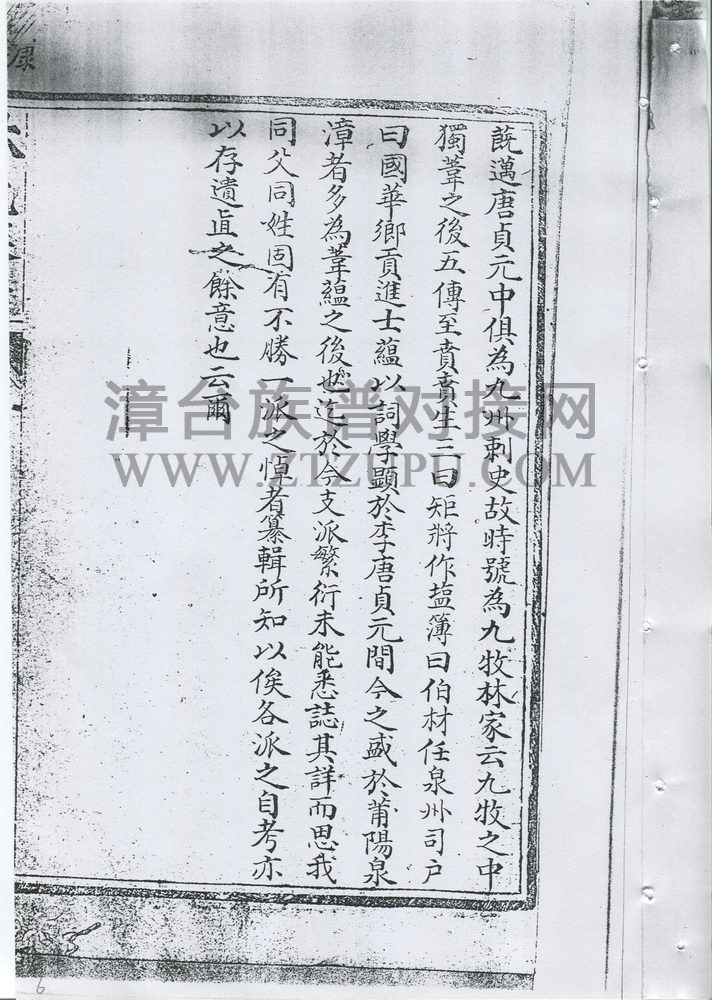 蕠邁唐貞元中俱為九州刺史故時號為九牧林家云九牧之中
獨葦之後五傳至賁賁生三曰矩將作塩簿曰伯材任泉州司户
曰國華鄉貢進士蘊以詞學顯於李唐貞元間今之盛於莆陽泉
漳者多為葦蘊之後也迄於今支派繁衍未能悉誌其詳而思我
同父同姓固有不勝一派之悼者纂輯所知以俟各派之自考亦
以存遺直之餘意也云爾
漳台族谱对接网
WWW.ZTZUPU.COM
6